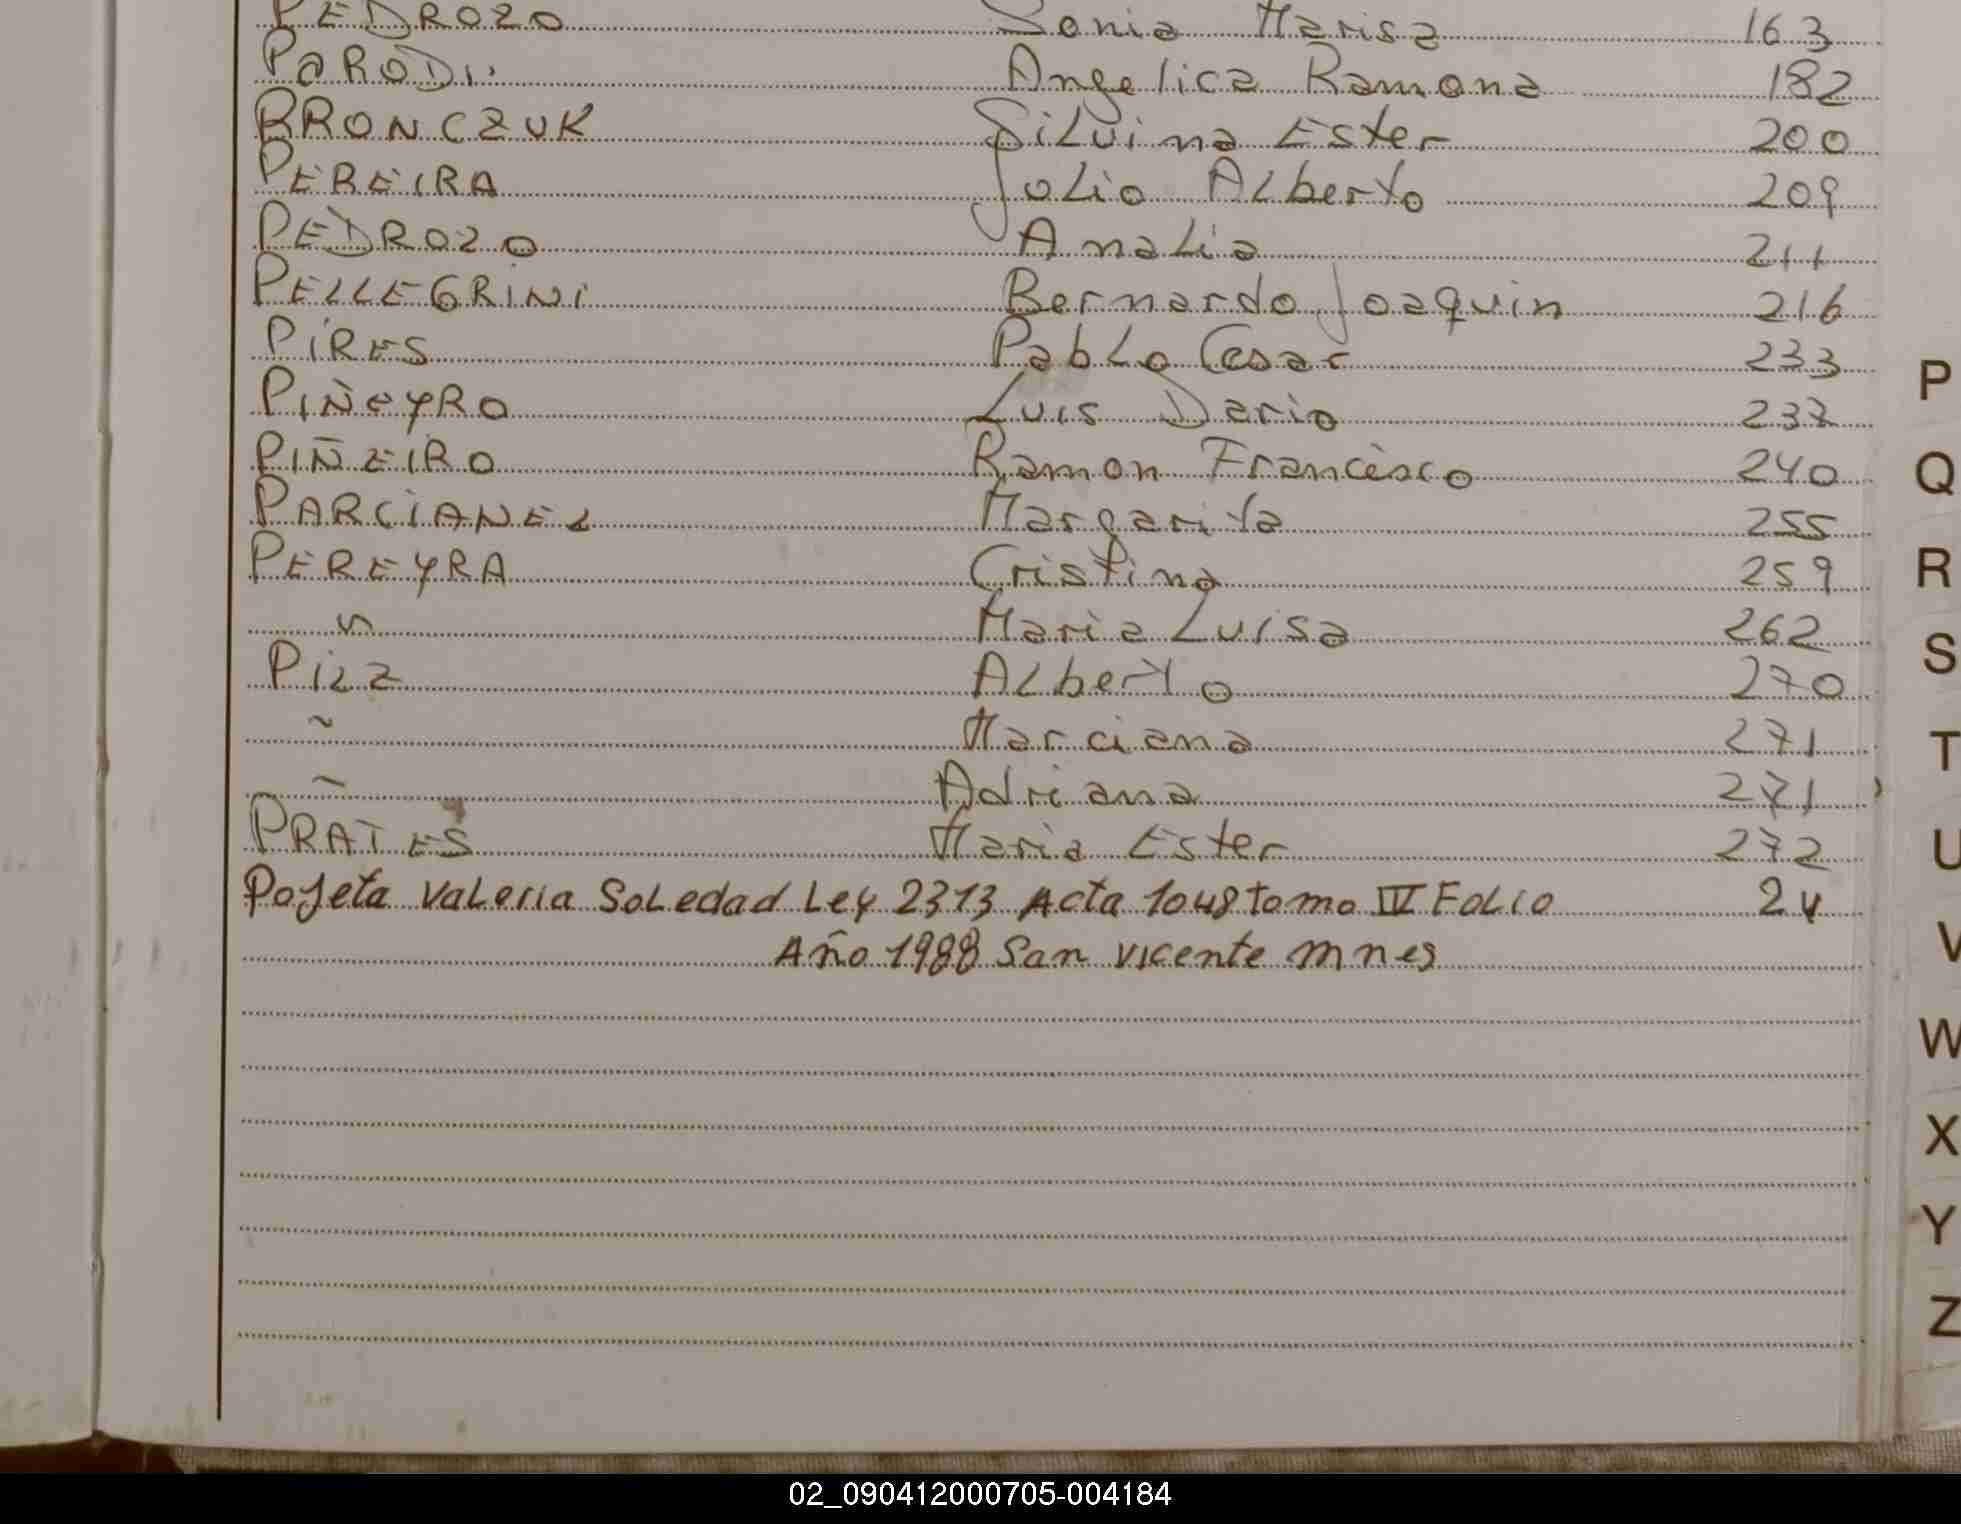 PEDROZO Sonia Marisa 163
PARODI Angelica Ramona 182
PRONCZUK Silvina Ester 200
PEREIRA Julio Alberto 209
PEDROZO Analia 211
PELLEGRINI Bernardo Joaquin 216
PIRES Pablo Cesar 233
PIÑEYRO Luis Dario 237
PIÑEIRO Ramon Francisco 240
PARCIANEL Margarita 255
PEREYRA Cristina 259
" Maria Luisa 262
PILZ Alberto 270
~ Marciana 271
~ Adriana 271
PRATES Maria Ester 272
Pojeta Valeria Soledad Ley 2313 Acta 1048 tomo IV Folio 24
Año 1988 San Vicente mnes
P
Q
R
S
T
U
V
W
X
Y
Z
02_090412000705-004184